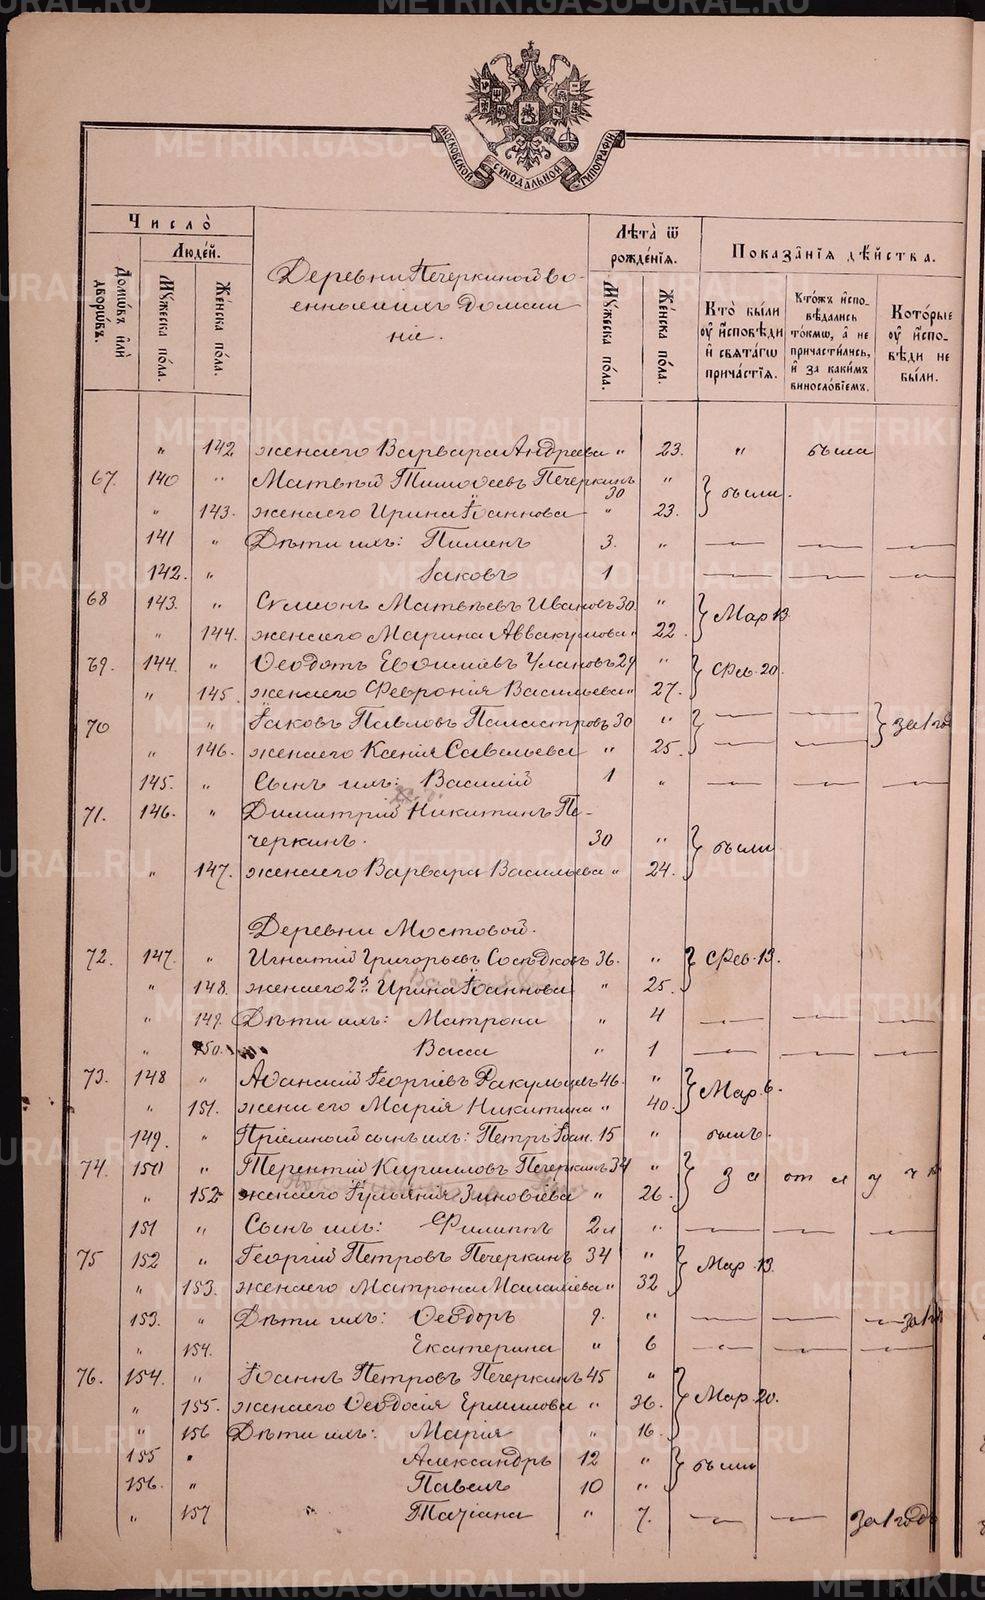 МОСКОВСКОЙ СУНОДАЛЬНОЙ ТИПОГРАФІИ
Число̀
Люде́й.
Домѡ́въ и҆лѝ дворѡ́въ.
Мꙋ́жеска по́ла.
Же́нска по́ла.
Деревни Печеркиной во-
енные и ихъ домаш
ніе.
Лѣ́та ѿ рожде́нїѧ.
Мꙋ́жеска по́ла.
Же́нска по́ла.
Показа̑нїѧ дѣ́йства.
Кто̀ бы́ли оу҆ и҆сповѣ́ди и҆ свѧта́гѡ прича́стїѧ.
Кто́жъ и҆спо-вѣ́дались то́кмѡ, а҆ не причасти́лись, и҆ за каки́мъ винослові́емъ.
Кото́рые оу҆ и҆спо-вѣ́ди не бы́ли.
" 142 жена его Варвара Андреева " 23. " была
67. 140 " Матвѣй Тимоѳеевъ Печеркинъ 30 " были.
" 143. жена его Ирина Іоаннова " 23.
141 " Дѣти ихъ: Пименъ 3. "
142. " Іаковъ 1
68 143. " Симеонъ Матвѣевъ Ивановъ 30. " Мар 13.
" 144. жена его Марина Аввакумова " 22.
69. 144. " Ѳеодотъ Евѳиміевъ Улановъ 29 " Фев. 20.
" 145. жена его Февронія Васильева " 27.
70 " Іаковъ Павловъ Паластровъ 30 " за 1 годъ
" 146. жена его Ксенія Савельева " 25.
145. " Сынъ ихъ: Василій 1 "
71. 146. " Димитрій Никитинъ Пе-
черкинъ. 30 " были
" 147. жена его Варвара Васильева " 24.
Деревни Мостовой.
72. 147. " Игнатій Григорьевъ Сосѣдковъ 36. " Фев. 13.
" 148. жена его 2я Ирина Іоаннова " 25.
" 149. Дѣти ихъ: Матрона " 4
" 150. Васса " 1
73. 148 " Аѳанасій Георгіевъ Ракульцевъ 46. " Мар. 6.
" 151. жена его Марія Никитина " 40.
149. " Пріемной сынъ ихъ: Петръ Іоан. 15 " былъ.
74. 150 " Терентій Кирилловъ Печеркинъ 34 " за отлуч
" 152 жена его Гуліянія Зиновіева " 26.
151 " Сынъ ихъ: Филиппъ 2 "
75 152 " Георгій Петровъ Печеркинъ 34 " Мар. 13.
" 153. жена его Матрона Малашева " 32
153. " Дѣти ихъ: Ѳеодоръ 9. " за 1 годъ
" 154. Екатерина " 6
76. 154. " Іоаннъ Петровъ Печеркинъ 45 " Мар. 20.
" 155. жена его Ѳеодосія Ермилова " 36.
" 156 Дѣти ихъ: Марія " 16.
155 " Александръ 12 " были
156. " Павелъ 10 "
" 157 " Татіана " 7. за 1 годъ
METRIKI.GASO-URAL.RU